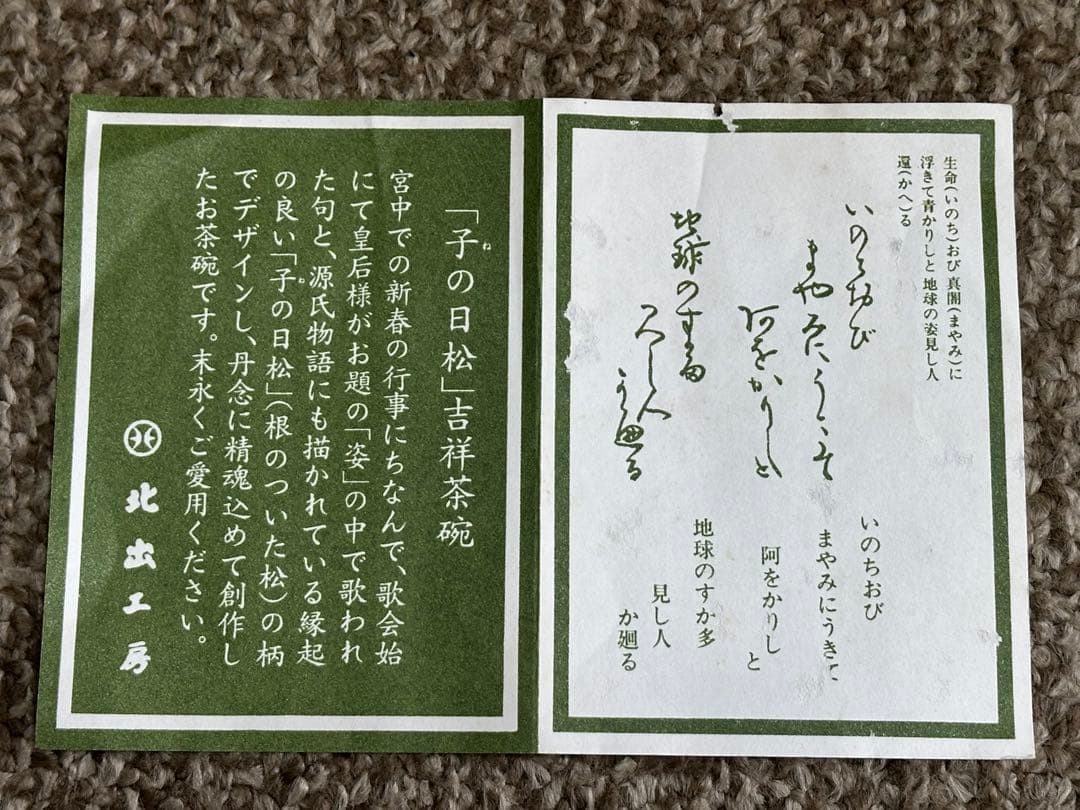 生命(いのち)おび 真闇(まやみ)に
浮きて青かりしと 地球の姿見し人
還(かへ)る
いのちおび
まやみにうきて
阿をかりしと
地球のすか多
見し人
か廻る
いのちおび
まやみにうきて
阿をかりし
と
地球のすか多
見し人
か廻る
「子の日松」吉祥茶碗
ね
宮中での新春の行事にちなんで、歌会始
にて皇后様がお題の「姿」の中で歌われ
た句と、源氏物語にも描かれている縁起
の良い「子の日松」(根のついた松)の柄
ね
でデザインし、丹念に精魂込めて創作し
たお茶碗です。末永くご愛用ください。
北出工房